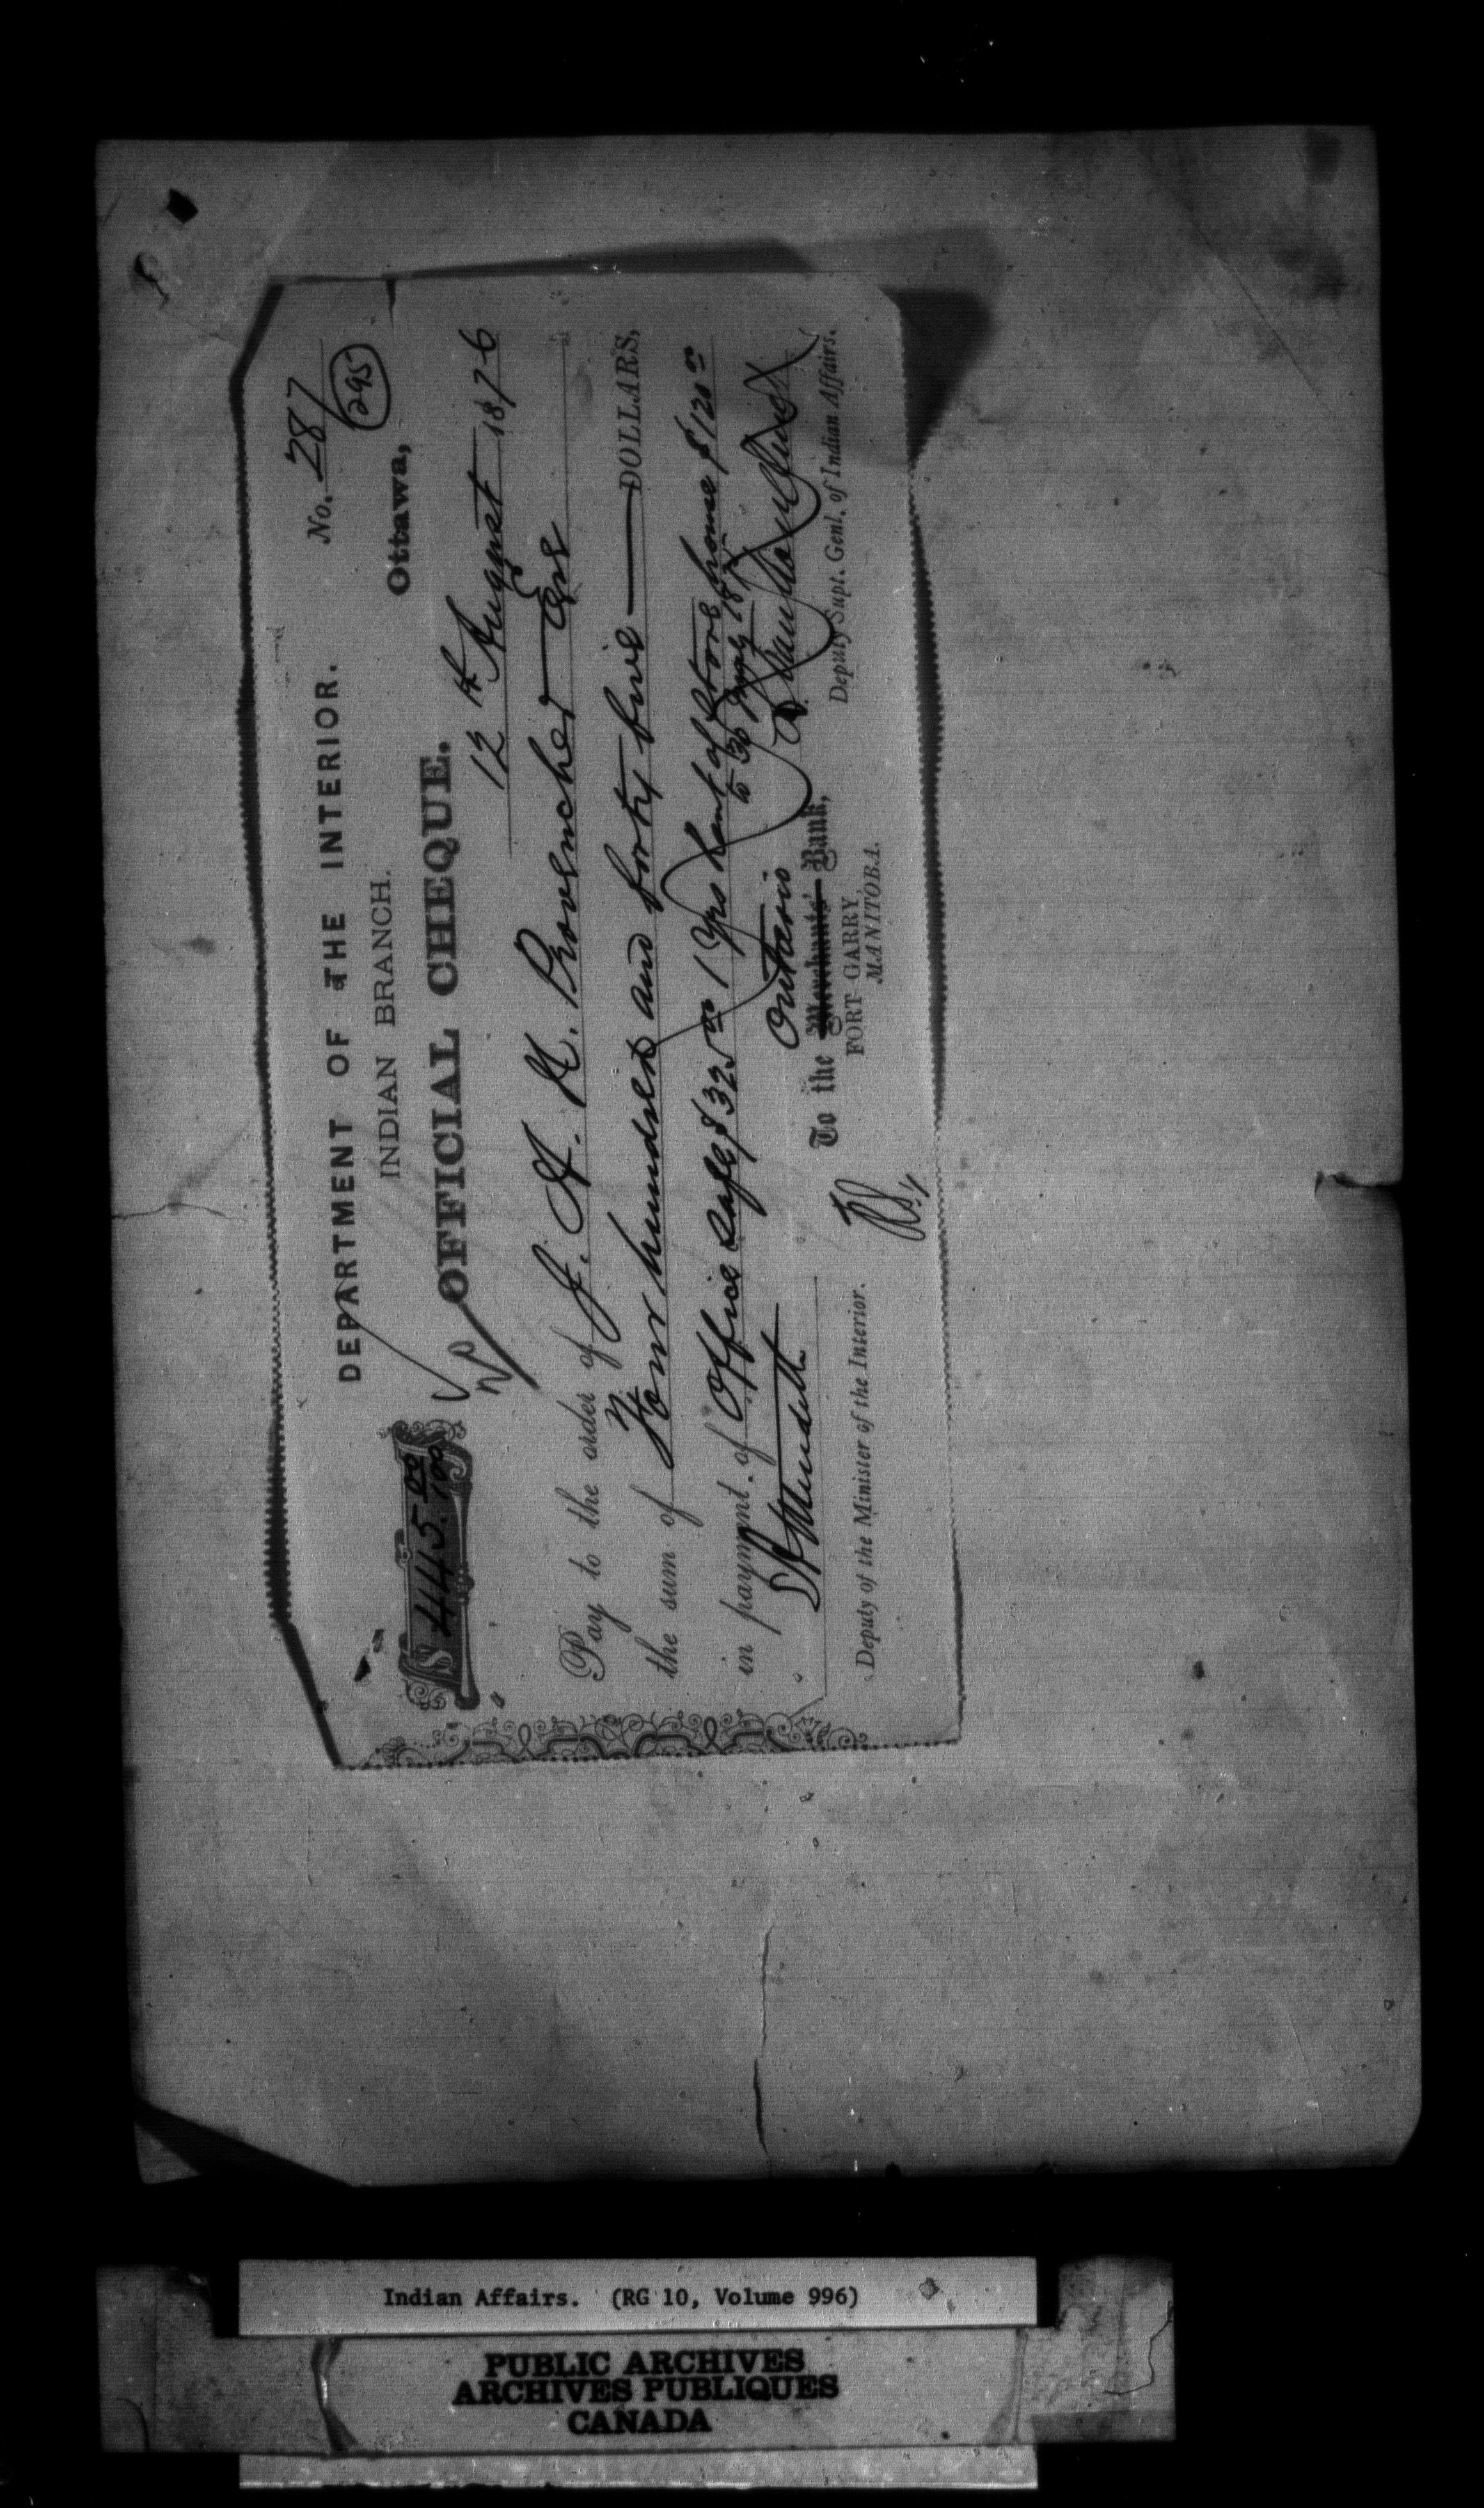 No. 287
295
DEPARTMENT OF THE INTERIOR.
INDIAN BRANCH.
Ottawa,
OFFICIAL CHEQUE.
$ 445 00/100
12th August 1876
Pay to the order of J. A. N. Provencher Esq
the sum of Four hundred and forty five DOLLARS,
in paymnt. of Office Safe $325 00 1 Yrs Rent of Store house $120 00
to 30 187
Ontario
To the Merchants' Bank,
FORT GARRY,
MANITOBA.
Deputy of the Minister of the Interior.
Deputy Supt. Genl. of Indian Affairs.
Indian Affairs. (RG 10, Volume 996)
PUBLIC ARCHIVES
ARCHIVES PUBLIQUES
CANADA